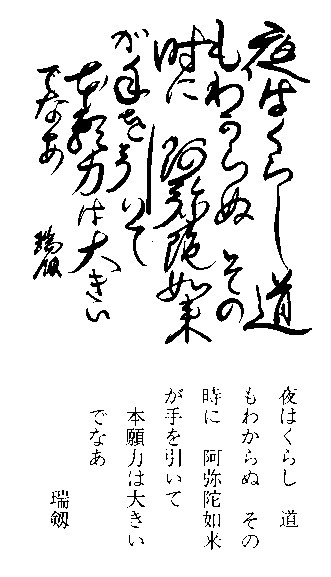 夜はくらし 道
もわからぬ その
時に 阿弥陀如来
が手を引いて
本願力は大きい
でなあ
瑞劔
夜はくらし 道
もわからぬ その
時に 阿弥陀如来
が手を引いて
本願力は大きい
でなあ
瑞劔